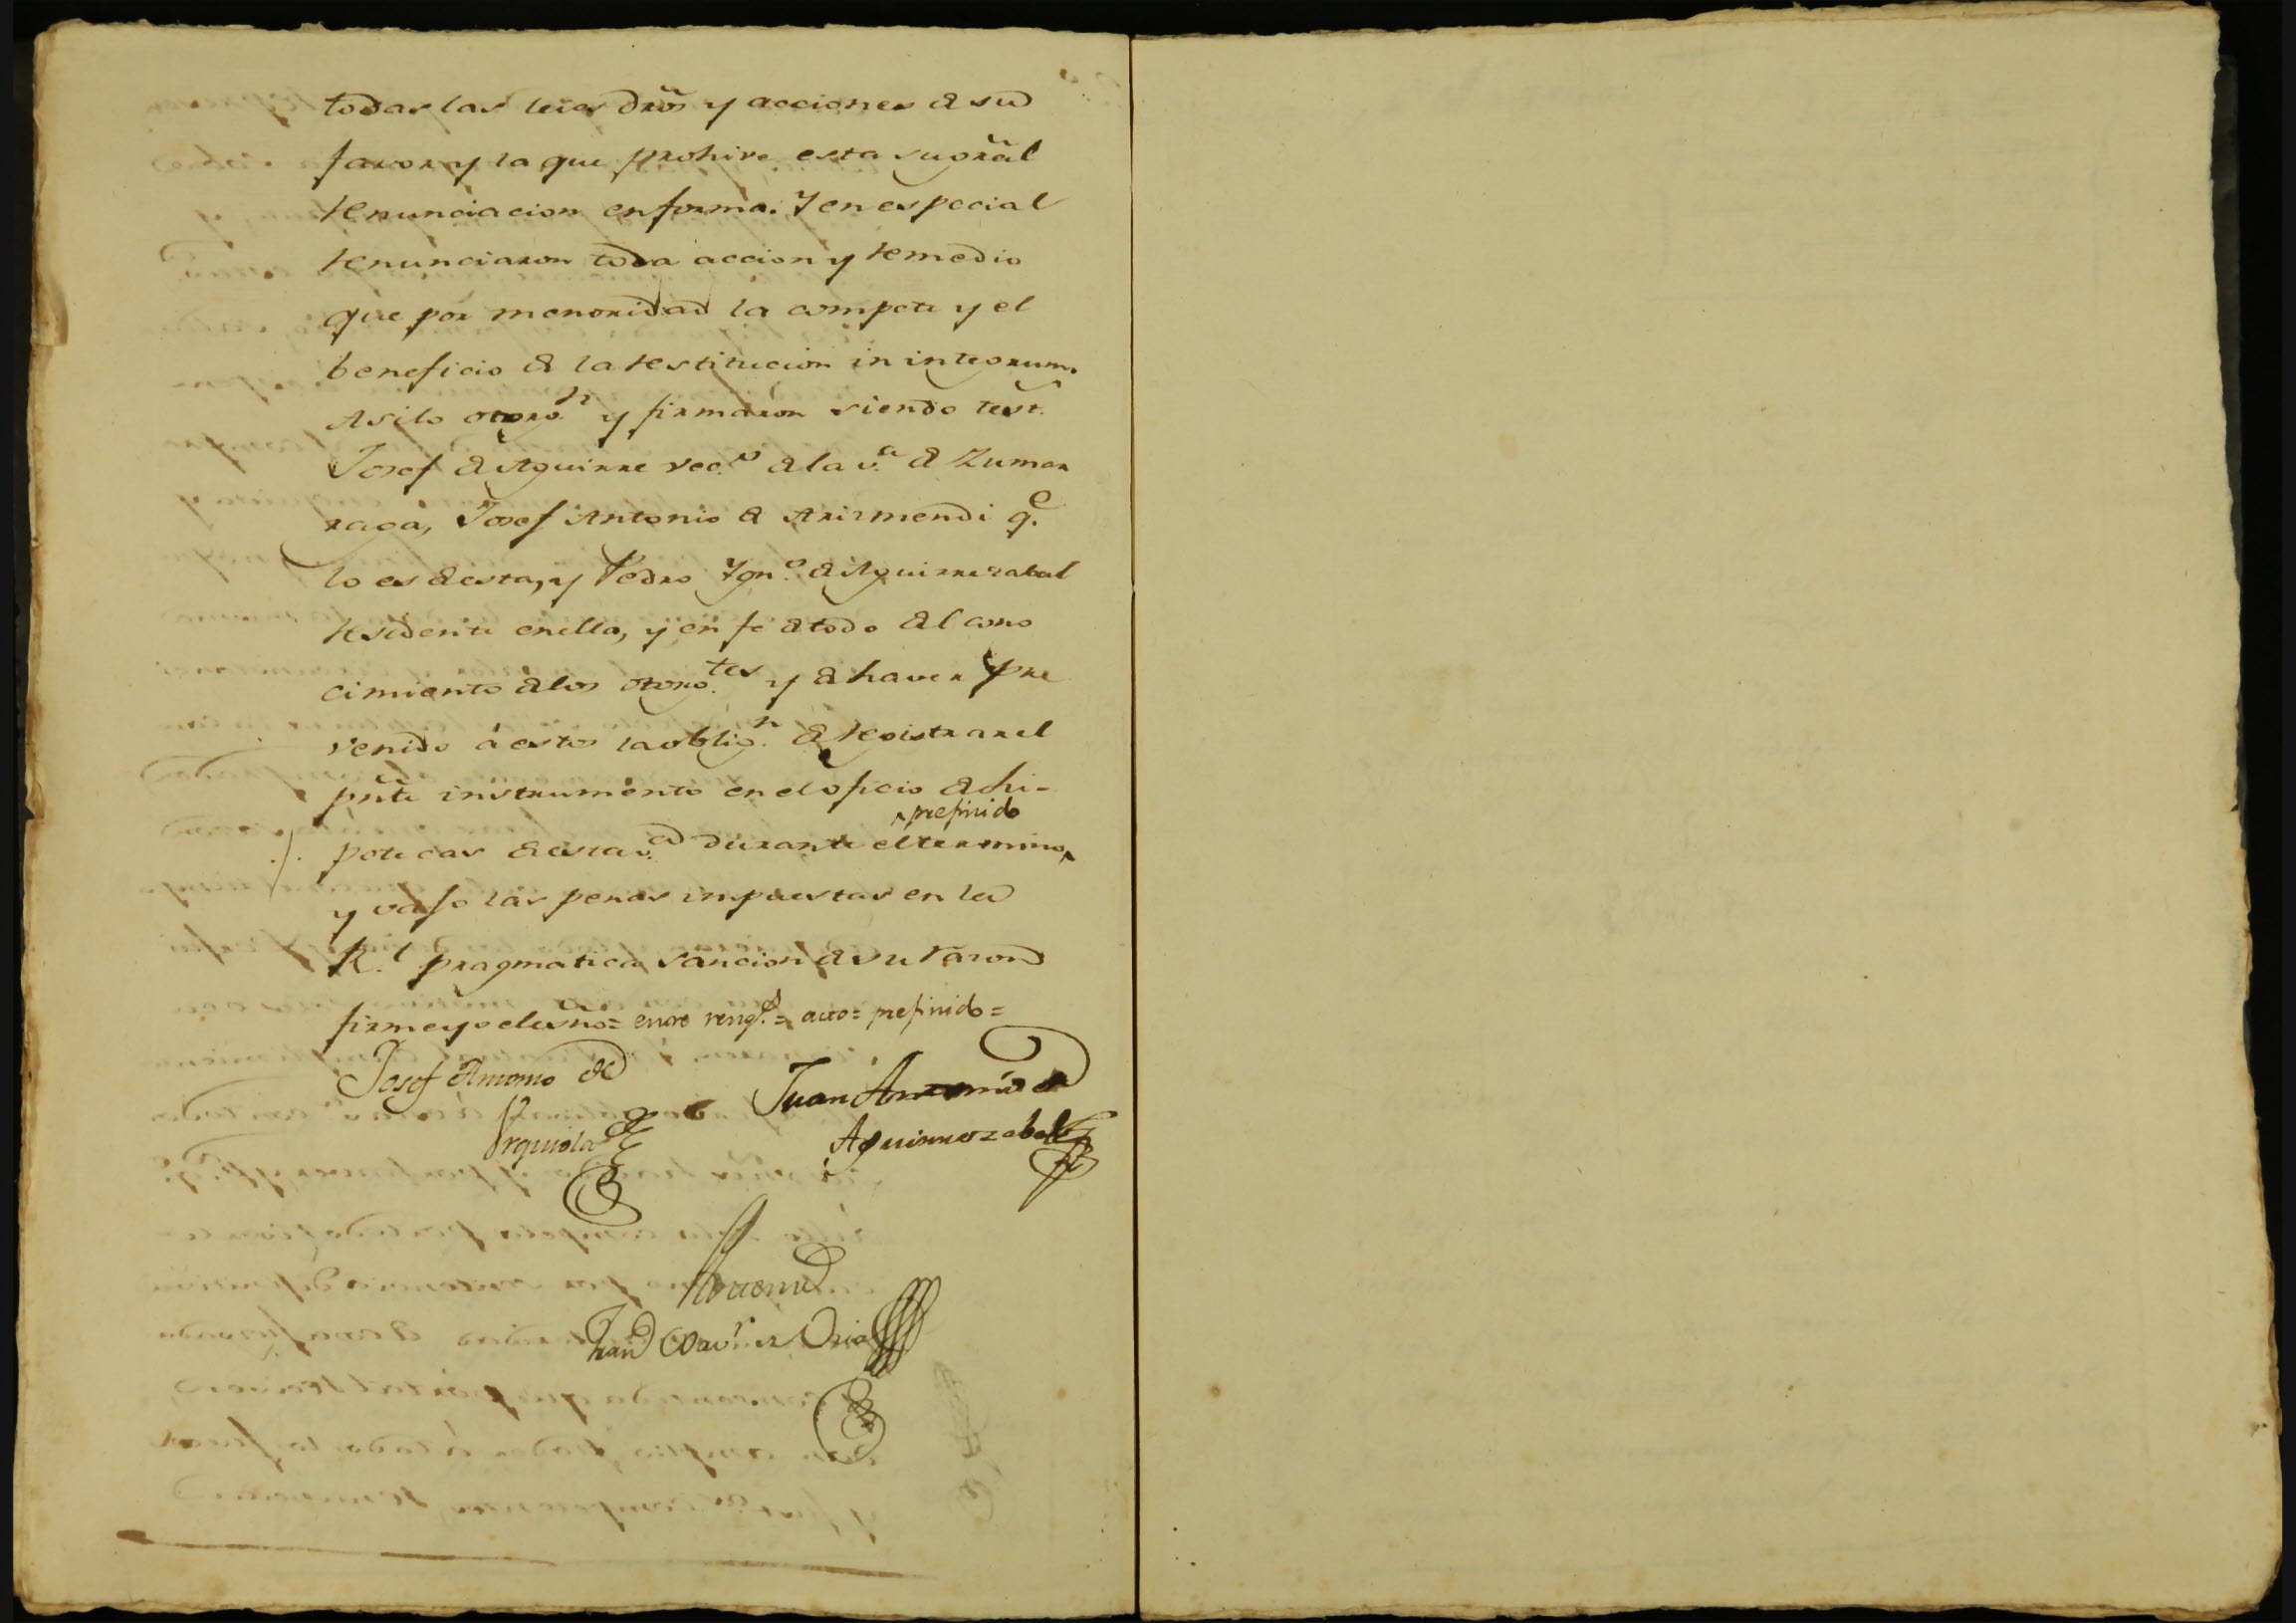 todas las leies dr̃os y acciones de su
favor y la que prohive esta su gr̃al
renunciacion en forma. Y en especial
renunciaron toda accion y remedio
que por menoridad la compete y el
beneficio de la restitucion in integrum.
Asi lo otorg.ⁿ y firmaron siendo test.
Josef de Aguirre vec.º de la v.ª de Zumar
raga, Josef Antonio de Arizmendi q.ᵉ
lo es de esta, y Pedro Ygn.º de Aguirrezabal
residente en ella, y en fe de todo del cono
cimiento de los otorg.ᵗᵉˢ y de haver pre
venido á estos la oblig.ⁿ de registrar el
pñte instrumento en el oficio de hi-
potecas de esta v.ª durante el termino ^prefinido
y vajo las penas impuestas en la
R.ˡ pragmatica sancion de su razon
firme yo el esñno= entre reng.ˢ = acto= prefinido=
Josef Antonio de
Urquiola
Juan Antonio de
Aguirrezabal
Ante mi
Fran.co Xav.ʳ de Oria